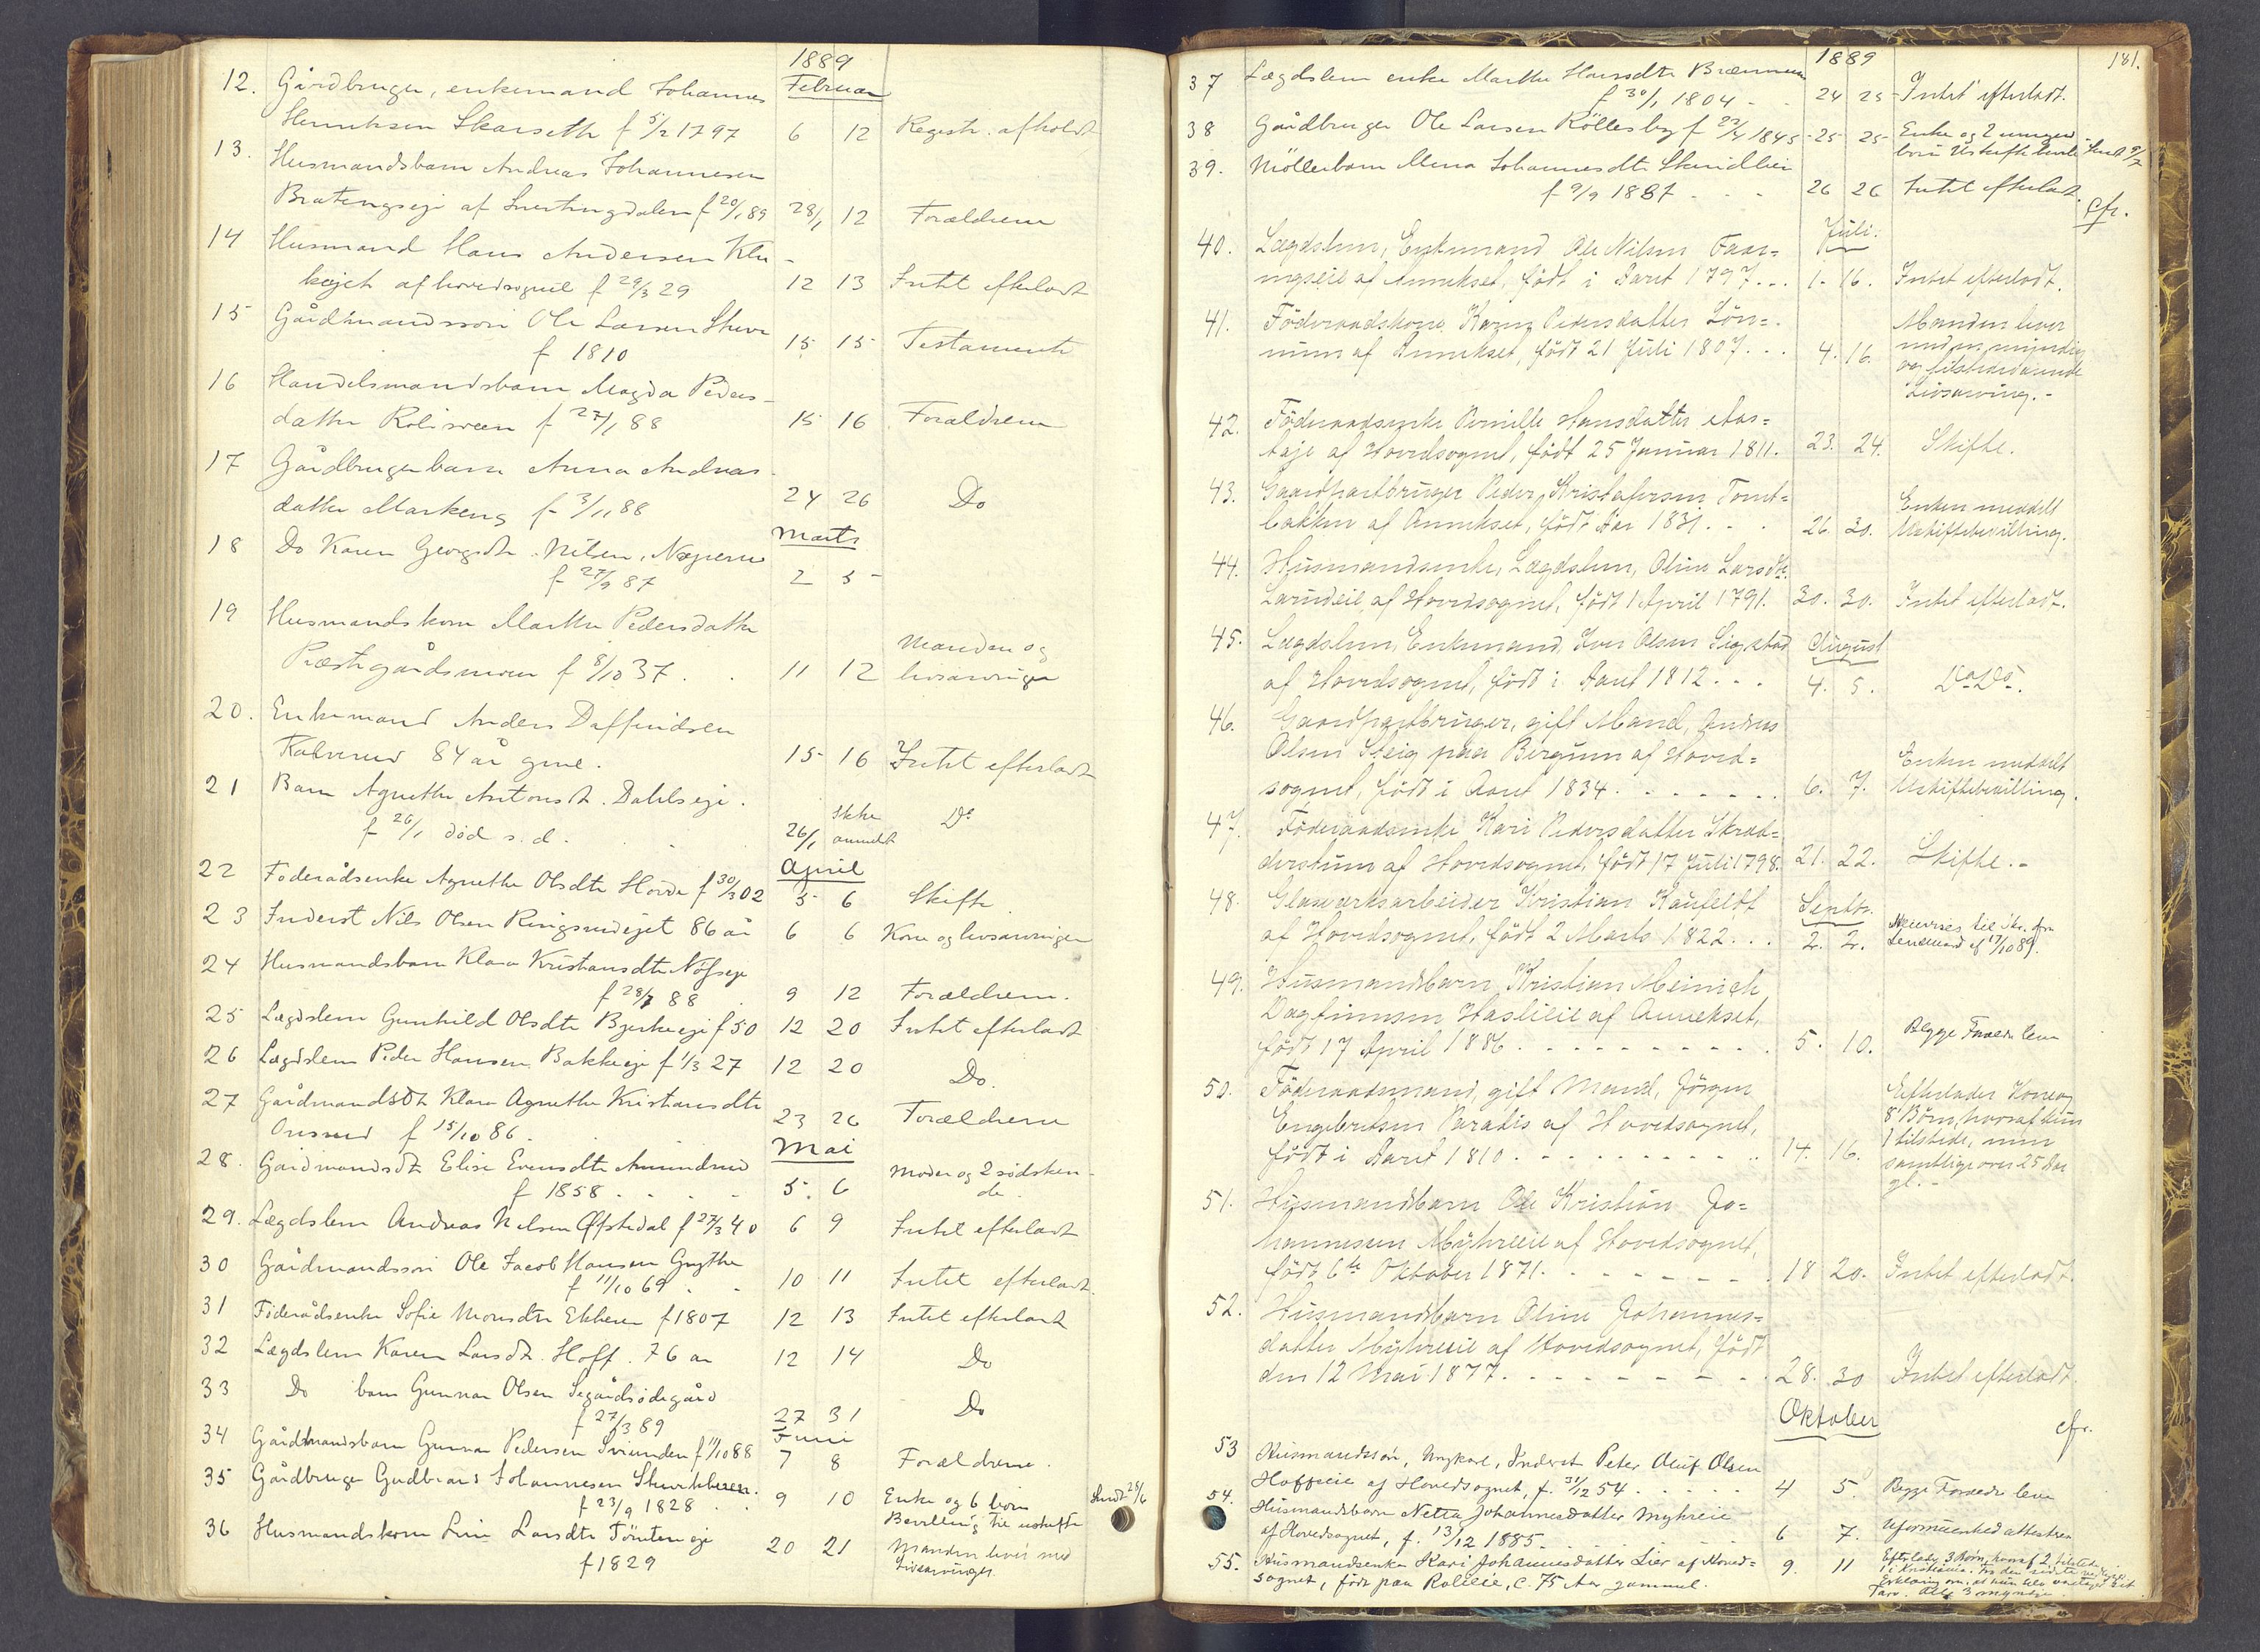 1889
Februar
12. Gårdbruger, enkemand Johannes
Henriksen Skarseth f 5/2 1797 6 12 Registr. afholdt
13. Husmandsbarn Andreas Johannesen
Bratengseje af Snertingdalen f 20/1 89 28/1 12 Forældrene
14 Husmand Hans Andersen Klu-
kejet af hovedsognet f 29/3 29 12 13 Intet efterladt
15 Gårdmandssøn Ole Larsen
f 1810 15 15 Testamente
16 Handelsmandsbarn Magda Peders-
datter f 27/1 88 15 16 Forældrene
17 Gårdbrugerbarn Anna Andreas-
datter Markeng f 3/11 88 24 26 Do
Marts
18 Do Karen Georgsdtr. Nilsen,
f 27/9 87 2 5
19 Husmandskone Marthe Pedersdatter
Præstegårdsmoen f 8/10 37. 11 12 Manden og
livsarvinger
20. Enkemand Anders Daffindsen
84 år gml. 15 16 Intet efterladt
21 Barn Agnethe Antonsdt. Dahlseje.
f 26/1 død s. d. 26/1 Ikke
anmeldt Do
April
22 Føderådsenke Agnethe Olsdtr f 30/3 02 5 6 Skifte
23 Inderst Nils Olsen 86 år 6 6 Kone og livsarvinger
24 Husmandsbarn Klara Kristiansdtr
f 28/7 88 9 12 Forældrene.
25 Lægdslem Gunhild Olsdtr Bjerkeeje f 50 12 20 Intet efterladt
26 Lægdslem Peder Hansen Bakkeeje f 1/3 27 12 20 Do.
27 Gårdmandsdtr Klara Agnethe Kristiansdtr
f 15/10 86. 23 26 Forældrene
Mai
28. Gårdmandsdtr Elise Evensdtr Amundrud
f 1858 5. 6 Moder og 2 södsken-
de.
29. Lægdslem Andreas Nilsen f 27/3 40 6 9 Intet efterladt
30 Gårdmandssøn Ole Jacob Hansen Grythe
f 11/10 69 10 11 Intet efterladt.
31 Föderådsenke Sofie f 1807 12 13 Intet efterladt
32 Lægdslem Karen Larsdt. Hoff. 76 år 12 14 Do
33 Do barn Gunnar Olsen Segårdsødegård
f 27/3 89 27 31 Do
Juni
34 Gårdmandsbarn Gunnar Pedersen f 11/10 88 7 8 Forældrene.
35 Gårdbruger Gudbrand Johannesen
f 23/9 1828 9 10 Enke og 6 børn
Bevilling til uskifte Sendt 28/6
36 Husmandskone Larsdtr Tömteneje
f 1829 20 21 Manden lever med
livsarvinger.
1889
181.
37 Lægdslem enke Marthe Hansdtr
f 30/1 1804 24 25 Intet efterladt.
38 Gårdbruger Ole Larsen Röllesby f 23/4 1845 25 25 Enke og 2
39. Möllerbarn Mina Johannesdtr
f 9/9 1887 26 26 Intet efterladt.
cfr.
Juli.
40. Lægdslem, Enkemand Ole Nilsen Faar=
ingseie af Annekset, född i Aaret 1797... 1. 16. Intet efterladt.
41. Föderaadskone Karen Pedersdatter Lön=
num af Annekset, född 21 Juli 1807... 4. 16. Manden lever
med en myndig
og tilstedeværende
Livsarving.-
42. Föderaadsenke Pernille Hansdatter
af Hovedsognet, född 25 Januar 1811. 23. 24. Skifte.
43. Gaardpartbruger Peder Kristofersen Tomt=
bakken af Annekset, född Aar 1831... 26. 30. Enken meddelt
Uskiftebevilling.
44. Husmandsenke, Lægdslem, Oline Larsdtr.
af Hovedsognet, född 1 April 1791. 30. 30. Intet efterladt.
August
45. Lægdslem, Enkemand, Iver Olsen Sigstad
af Hovedsognet, född i Aaret 1812... 4. 5. Do Do.
46. Gaardpartbruger, gift Mand, Andreas
Olsen Steig paa Bergum af Hoved=
sognet, född i Aaret 1834. 6. 7. Enken meddelt
Uskiftebevilling.
47. Föderaadsenke Kari Pedersdatter Skræd=
derstuen af Hovedsognet, född 17 Juli 1798. 21. 22. Skifte.-
Septbr.
48. Glasværksarbeider Kristian Kaufeldt
af Hovedsognet, född 2 Marts 1822... 2. 2. Henvises til Skr. fra
Lensmand af 17/10 89.
49. Husmandsbarn Kristian Meinich
Dagfinnsen Haslieie af Annekset,
född 17 April 1886. 5. 10. Begge Forældre lever
50. Föderaadsmand, gift Mand, Jörgen
Engebretsen Paradis af Hovedsognet,
född i Aaret 1810. 14. 16. Efterlader Kone og
8 Børn, hvoraf kun
1 tilstede, men
samtlige over 25 Aar
gl.-
51. Husmandsbarn Ole Kristian Jo=
hannesen Myhreeie af Hovedsognet,
född 6te Oktober 1871. 18 20. Intet efterladt.
52. Husmandsbarn Oline Johannes=
datter Myhreeie af Hovedsognet, född
den 12 Mai 1877. 28. 30 Intet efterladt.
Oktober
cfr.
53 Husmandssøn, Ungkarl, Inderst Peter Oluf Olsen
Hoffseie af Hovedsognet, f. 31/12 54 4 5. Begge Forældre lever
54. Husmandsbarn Netta Johannesdatter Myhreie
af Hovedsognet, f. 13/12 1885. 6 7. Uformuenhed attesteres
55. Husmandsenke Kari Johannesdatter Lier af Hoved=
sognet, född paa Rolieie, c. 75 Aar gammel. 9. 11 Efterlader 3 Børn, hvoraf 2 tilstede